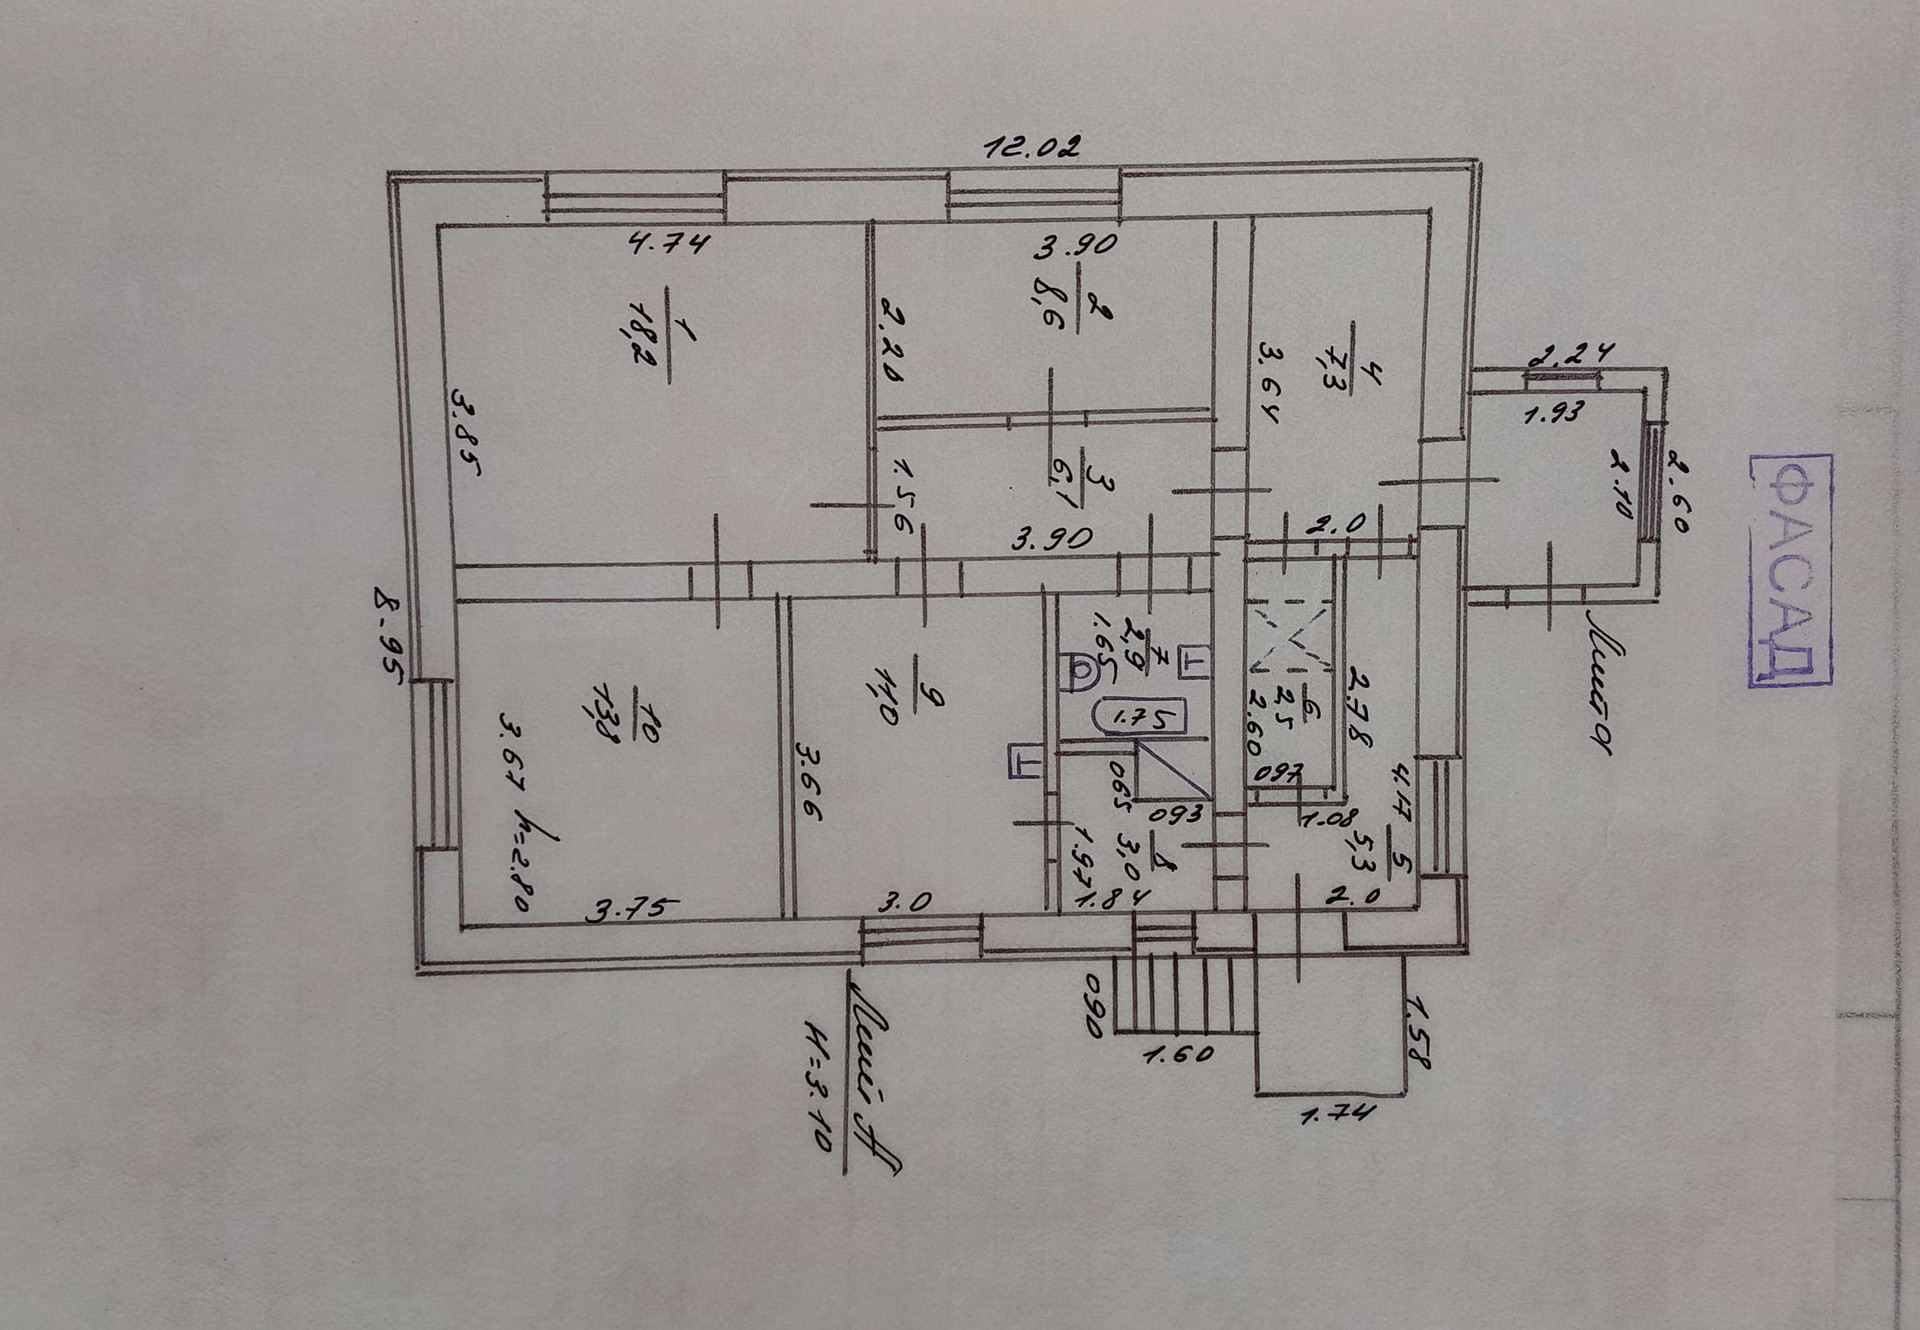 12.02
4.74
3.90
1
18,2
2
8,6
2.20
3.85
3.64
4
7,3
2.24
1.93
2.10
2.60
ФАСАД
1.56
3
6,1
3.90
2.0
8.95
7
2,9
1.65
1.75
6
2,5
2.60
2.78
4.17
Лит а
10
13,8
3.67 h=2.80
3.75
9
11,0
3.66
3.0
065
093
8
3,0
1.97
1.84
097
1.08
5
5,3
2.0
090
1.60
1.58
1.74
Лит А
H=3.10